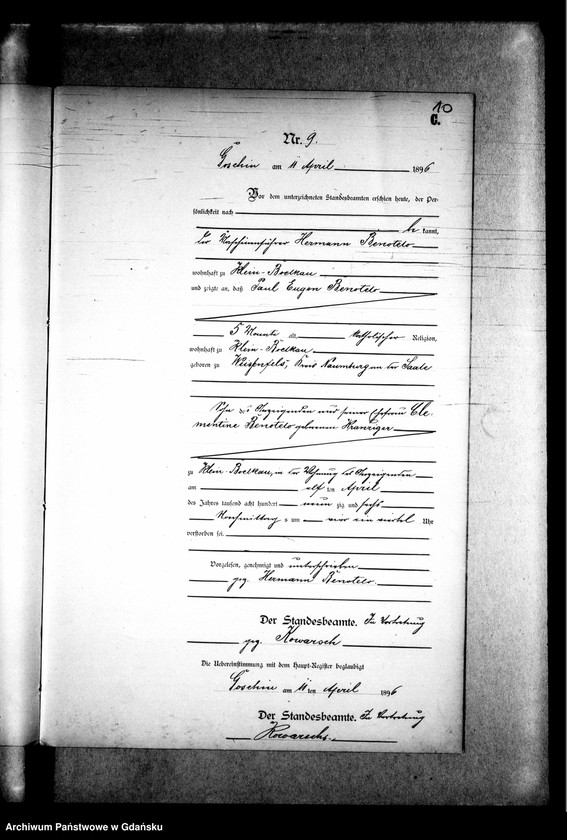 10
C.
Nr. 9.
Goschin am 11 April 1896
Vor dem unterzeichneten Standesbeamten erschien heute, der Per-
sönlichkeit nach
be kannt,
der Maschinenführer Hermann Benotelo
wohnhaft zu Klein-Boelkau
und zeigte an, daß Paul Eugen Benotelo
5 Monate alt, katholischer Religion,
wohnhaft zu Klein-Boelkau
geboren zu Weißenfels, Kreis Naumburg an der Saale
Sohn des Anzeigenden und seiner Ehefrau Cle-
mentine Benotelo geborenen Kranziger
zu Klein-Boelkau, in der Wohnung des Anzeigenden
am elf ten April
des Jahres tausend acht hundert neun zig und sechs
Nachmittags um vier ein viertel Uhr
verstorben sei.
Vorgelesen, genehmigt und unterschrieben
gez. Hermann Benotelo.
Der Standesbeamte. In Vertretung
gez. Kowarsch
Die Uebereinstimmung mit dem Haupt-Register beglaubigt
Goschin am 11 ten April 1896
Der Standesbeamte. In Vertretung
Kowarsch.
Archiwum Państwowe w Gdańsku